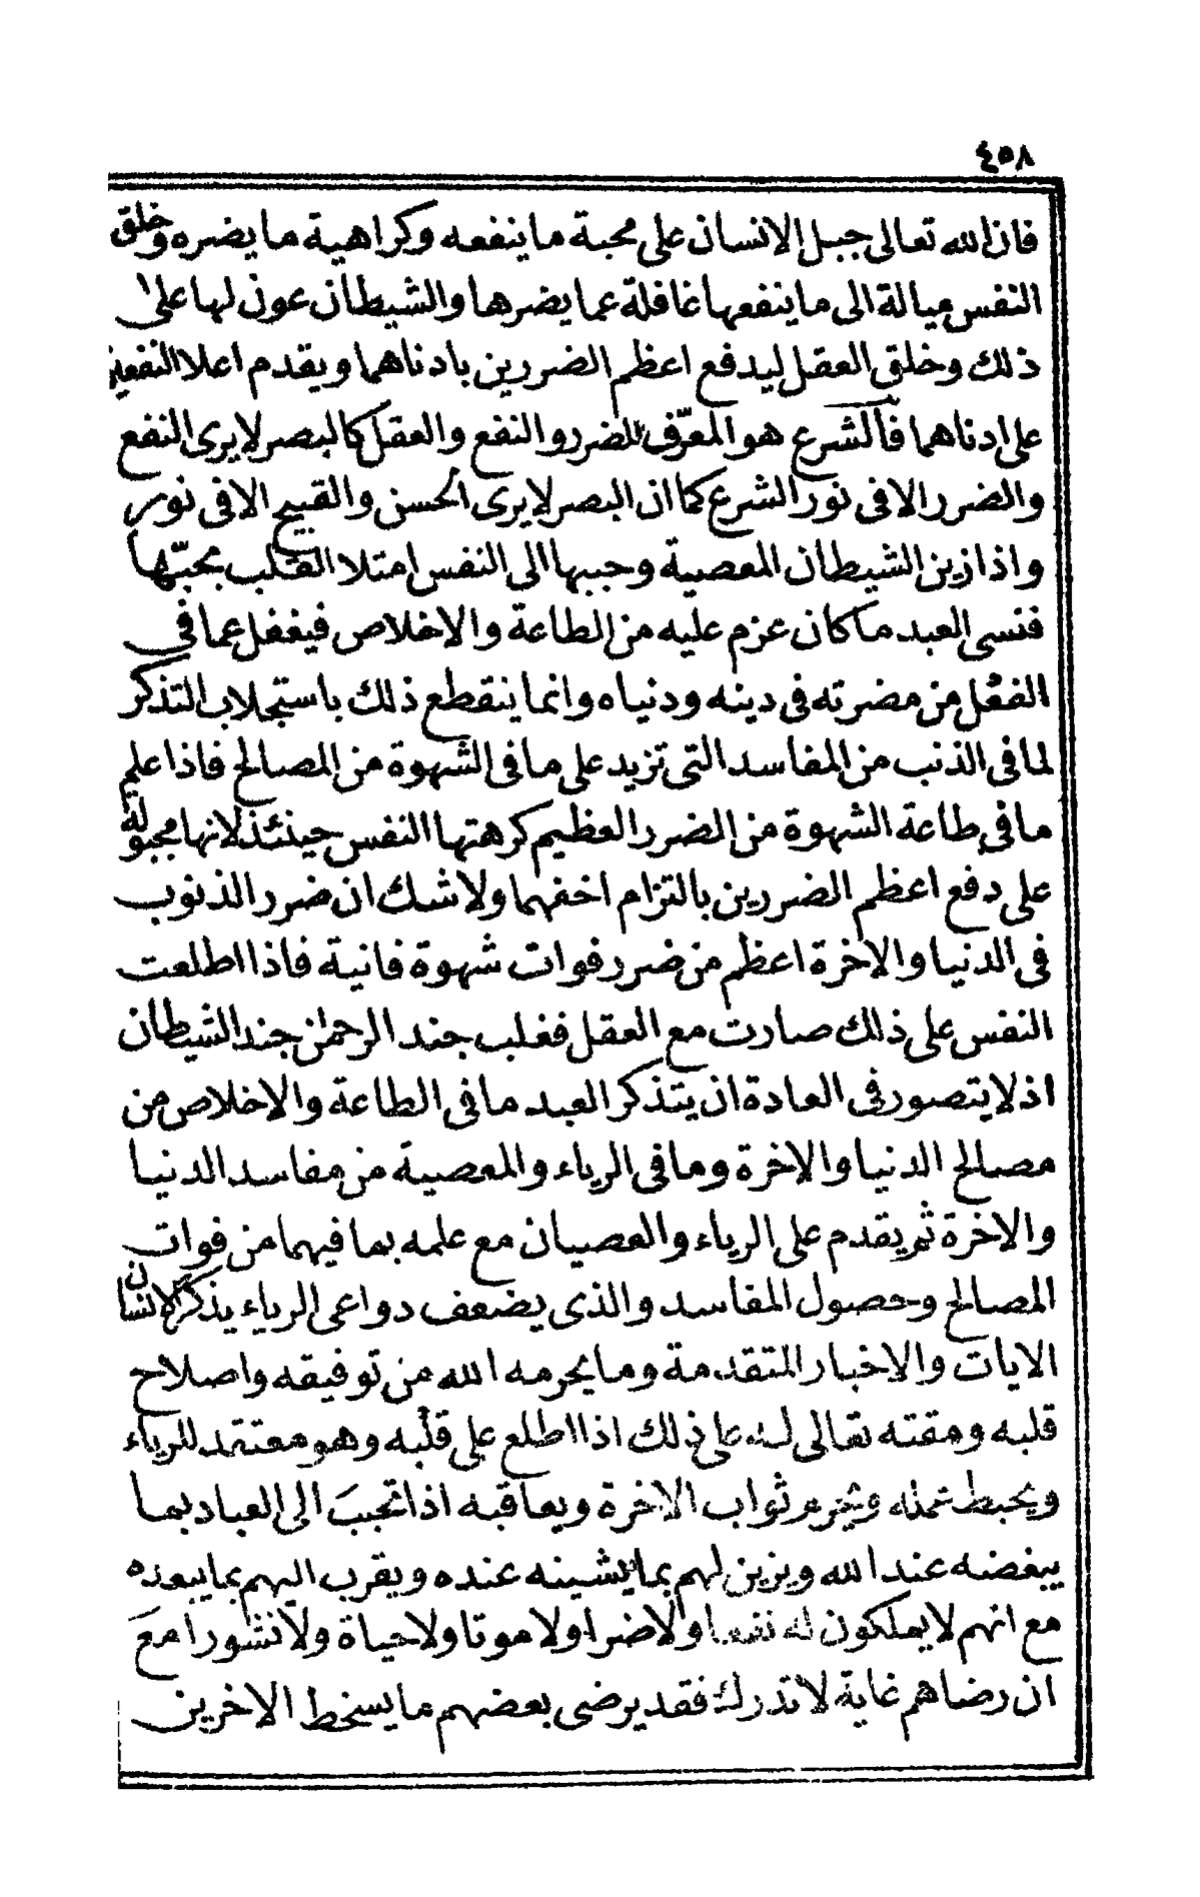 ٤٥٨
فان الله تعالى جبل الانسان على محبة ما ينفعه وكراهية ما يضره وخلق
النفس ميالة الى ما ينفعها غافلة عما يضرها والشيطان عون لها على
ذلك وخلق العقل ليدفع اعظم الضررين بادناهما ويقدم اعلا النفعين
على ادناهما فالشرع هو المعرّف للضرر والنفع والعقل كالبصر لا يرى النفع
والضرر الا فى نور الشرع كما ان البصر لا يرى الحسن والقبيح الا فى نور
واذا زين الشيطان المعصية وحببها الى النفس امتلا القلب بمحبّتها
فنسى العبد ما كان عزم عليه من الطاعة والاخلاص فيغفل عما فى
الفعل من مضرته فى دينه ودنياه وانما ينقطع ذلك باستجلاب التذكر
لما فى الذنب من المفاسد التى تزيد على ما فى الشهوة من المصالح فاذا علم
ما فى طاعة الشهوة من الضرر العظيم كرهتها النفس حينئذ لانها مجبولة
على دفع اعظم الضررين بالتزام اخفهما ولا شك ان ضرر الذنوب
فى الدنيا والاخرة اعظم من ضرر فوات شهوة فانية فاذا اطلعت
النفس على ذلك صارت مع العقل فغلب جند الرحمن جند الشيطان
اذ لا يتصور فى العادة ان يتذكر العبد ما فى الطاعة والاخلاص من
مصالح الدنيا والاخرة وما فى الرياء والمعصية من مفاسد الدنيا
والاخرة ثم يقدم على الرياء والعصيان مع علمه بما فيهما من فوات
المصالح وحصول المفاسد والذى يضعف دواعى الرياء يذكر الانسان
الايات والاخبار المتقدمة وما يحرمه الله من توفيقه واصلاح
قلبه ومقته تعالى له على ذلك اذا اطلع على قلبه وهو معتمد للرياء
ويحبط عمله ويحرم ثواب الاخرة ويعاقبه اذا تحببَ الى العباد بما
يبغضه عند الله ويزين لهم بما يشينه عنده ويقرب اليهم بما يبعده
مع انهم لا يملكون له نفعا ولا ضرا ولا موتا ولا حياة ولا نشورا معَ
ان رضاهم غاية لا تدرك فقد يرضى بعضهم ما يسخط الاخرين